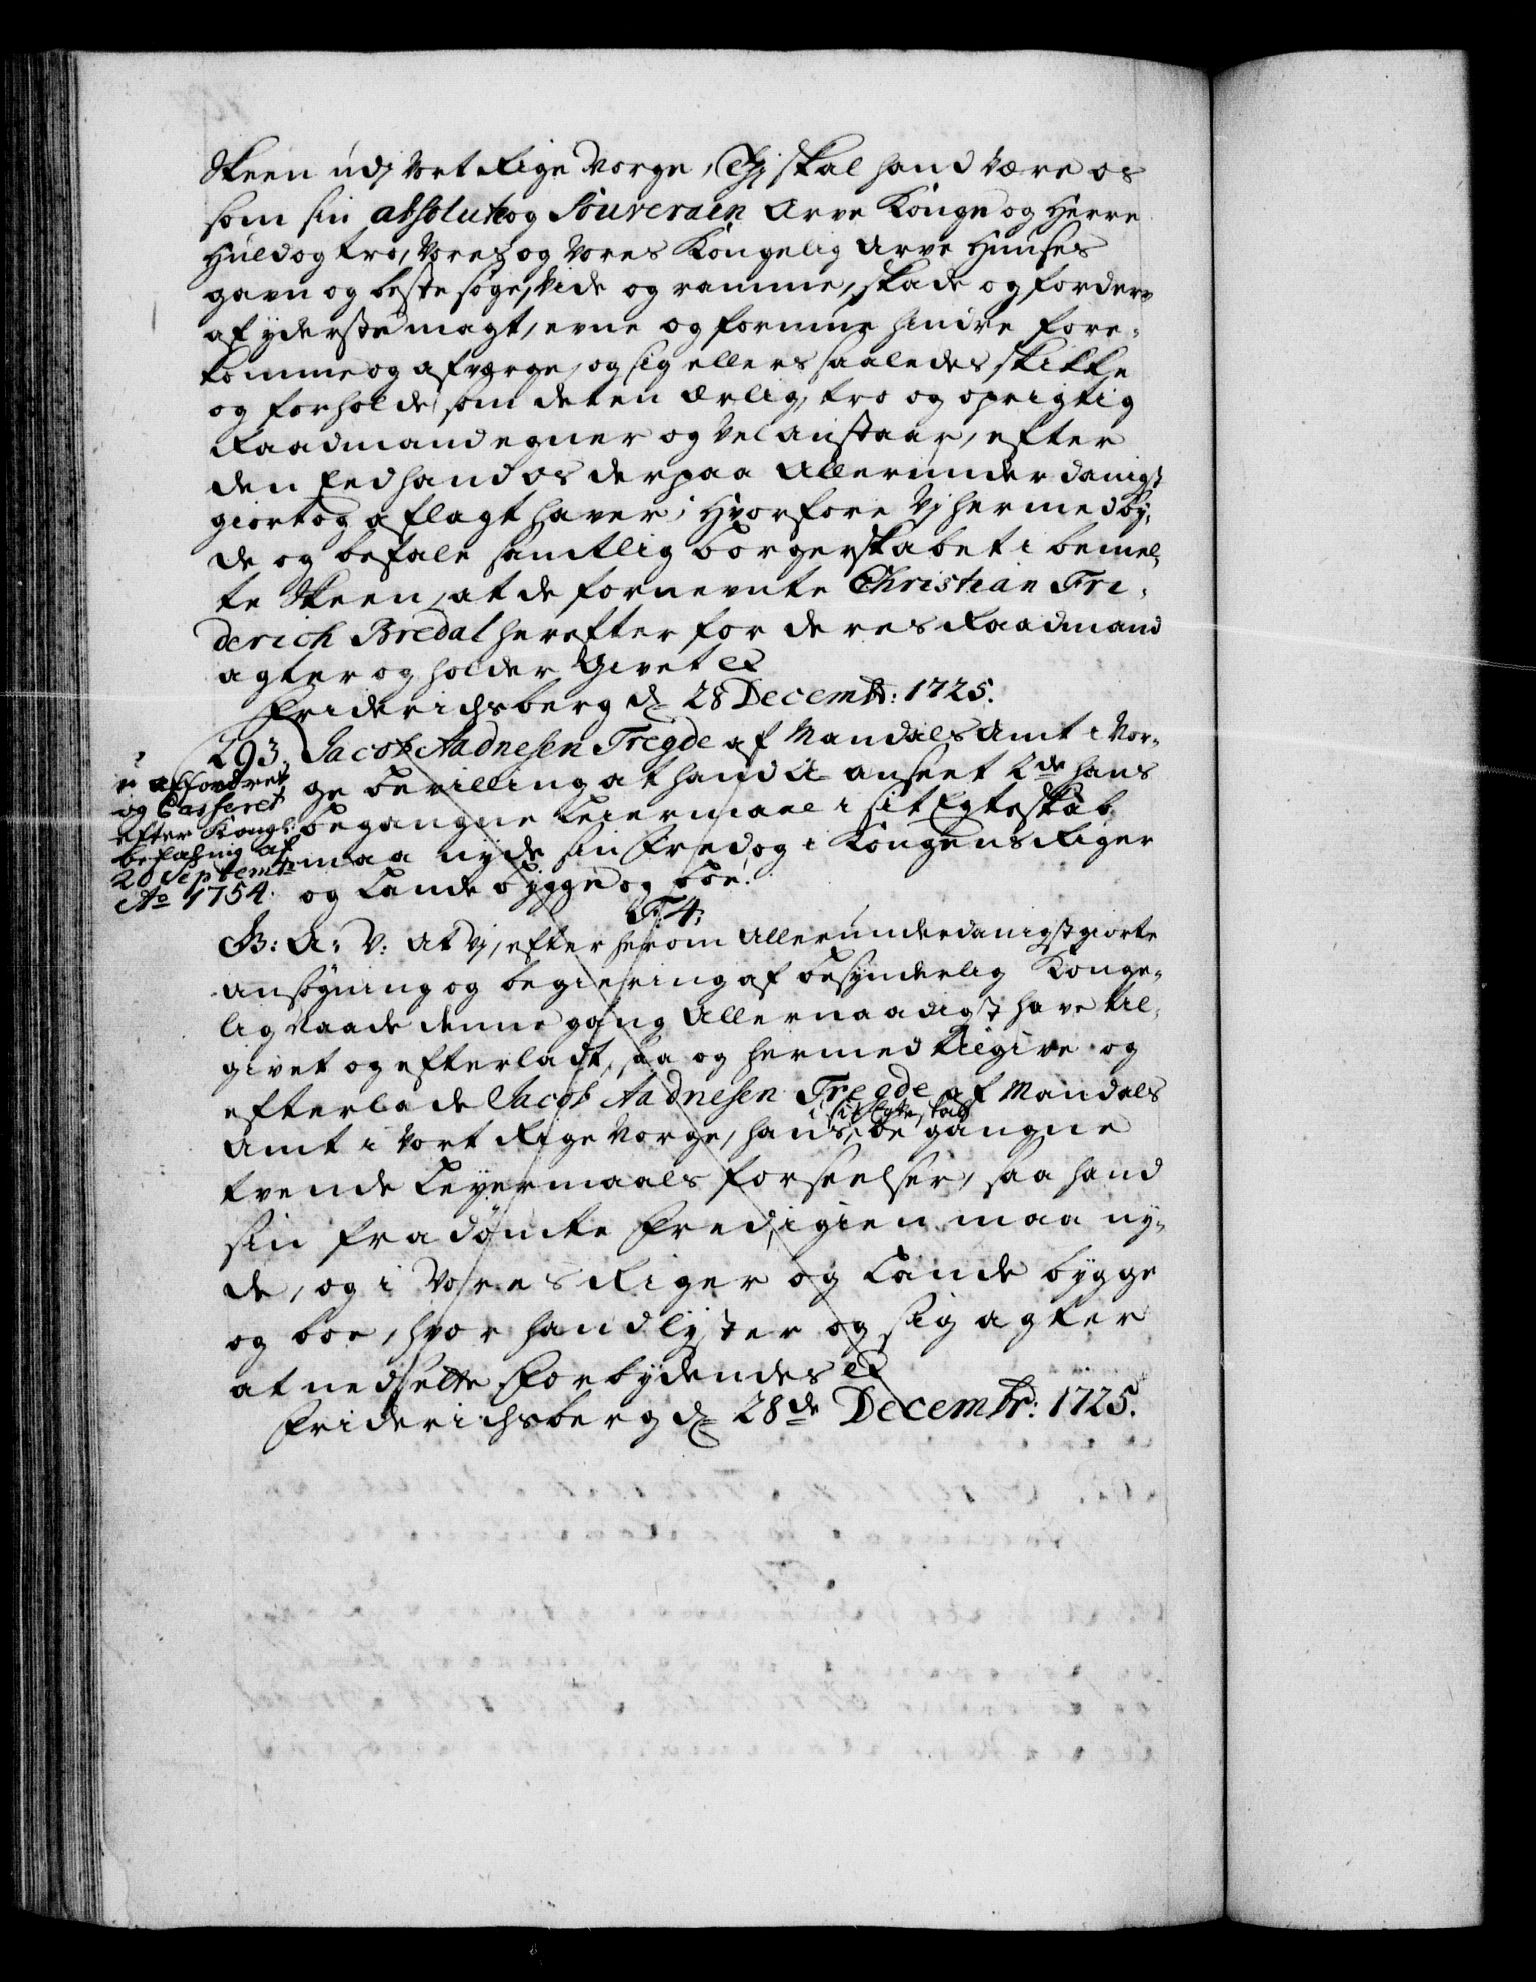 Skeen udj Vort Rige Norge, Thj skal hand være os
som sin absolute og Souverain Arve Konge og Herre
Huld og tro, Vores og Vores Kongelig Arve Huuses
gavn og beste søge, Vide og ramme, skade og forderv
af yderste magt, evne og formue hindre fore-
komme og afverge, og sig ellers saaledes skikke
og forholde som det en ærlig, tro og oprigtig
Raadmand egner og vel anstaar, efter
den Eed hand os derpaa Allerunderdanigst
giort og aflagt haver; Hvorfore Vj hermed by-
de og befale samtlig borgerskabet i bemel-
te Skeen, at de fornevnte Christian Fri-
derich Bredal herefter for deres Raadmand
agter og holder. Givet etc
Friderichsberg d. 28 Decembr: 1725.
293. Jacob Aadnesen Tregde af Mandals Amt i Nor-
ge bevilling at hand U-anseet 2de hans
begangne Leiermaal i sit Egteskab,
maa nyde sin Fred, og i Kongens Riger
og Lande bygge og boe.
er affordret
og Casseret
efter Kongl:
befahing af
20 Septembr
Ao 1754.
F: 4:
G: A: V: At Vj, efter herom Allerunderdanigst giorte
ansøgning og begiering af besynderlig Konge-
lig Naade denne gang Allernaadigst have til-
givet og efterladt, saa og hermed tilgive og
efterlade Jacob Aadnesen Tregde af Mandals
Amt i Vort Rige Norge, hans i sit Egteskab begangne
tvende Leyermaals forseelser, saa hand
sin fradømte Fred, igien maa ny-
de, og i Vores Riger og Lande bygge
og boe, hvor hand lyster og sig agter
at nedsette Forbydendes etc
Friderichsberg d. 28de Decembr: 1725.